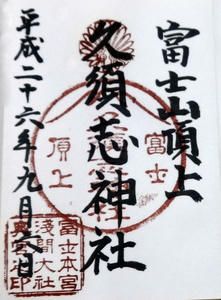 富士山頂上
久須志神社
平成二十六年九月六日
富士
頂上
富士本宮
浅間大社
奥宮之印